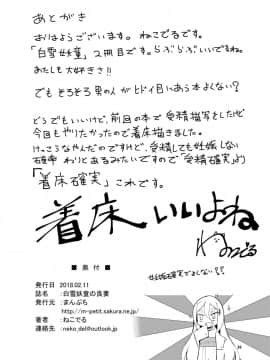 あとがき
おはようございます。ねこでるです。
「白雪妖童」2冊目です。らぶらぶいいですね。
あたしも大好きさ!!
でもそろそろ男の人がヒドイ目にあう本よくない?
どうでもいいけど、前回の本で受精描写をしたけど
今回もやりたかったので着床描きました。
けっこうなやんだのですけど、受精しても妊娠しない
確率わりとあるみたいですので「受精確実」より
「着床確実」これです。
着床いいよね
ねこでる
■奥付■
発行日 2018.02.11
誌名 白雪妖童の良妻
発行元 まんぷち
http://m-petit.sakura.ne.jp/
著者 ねこでる
連絡先 neko_del@outlook.jp
妊娠確実でよくない??